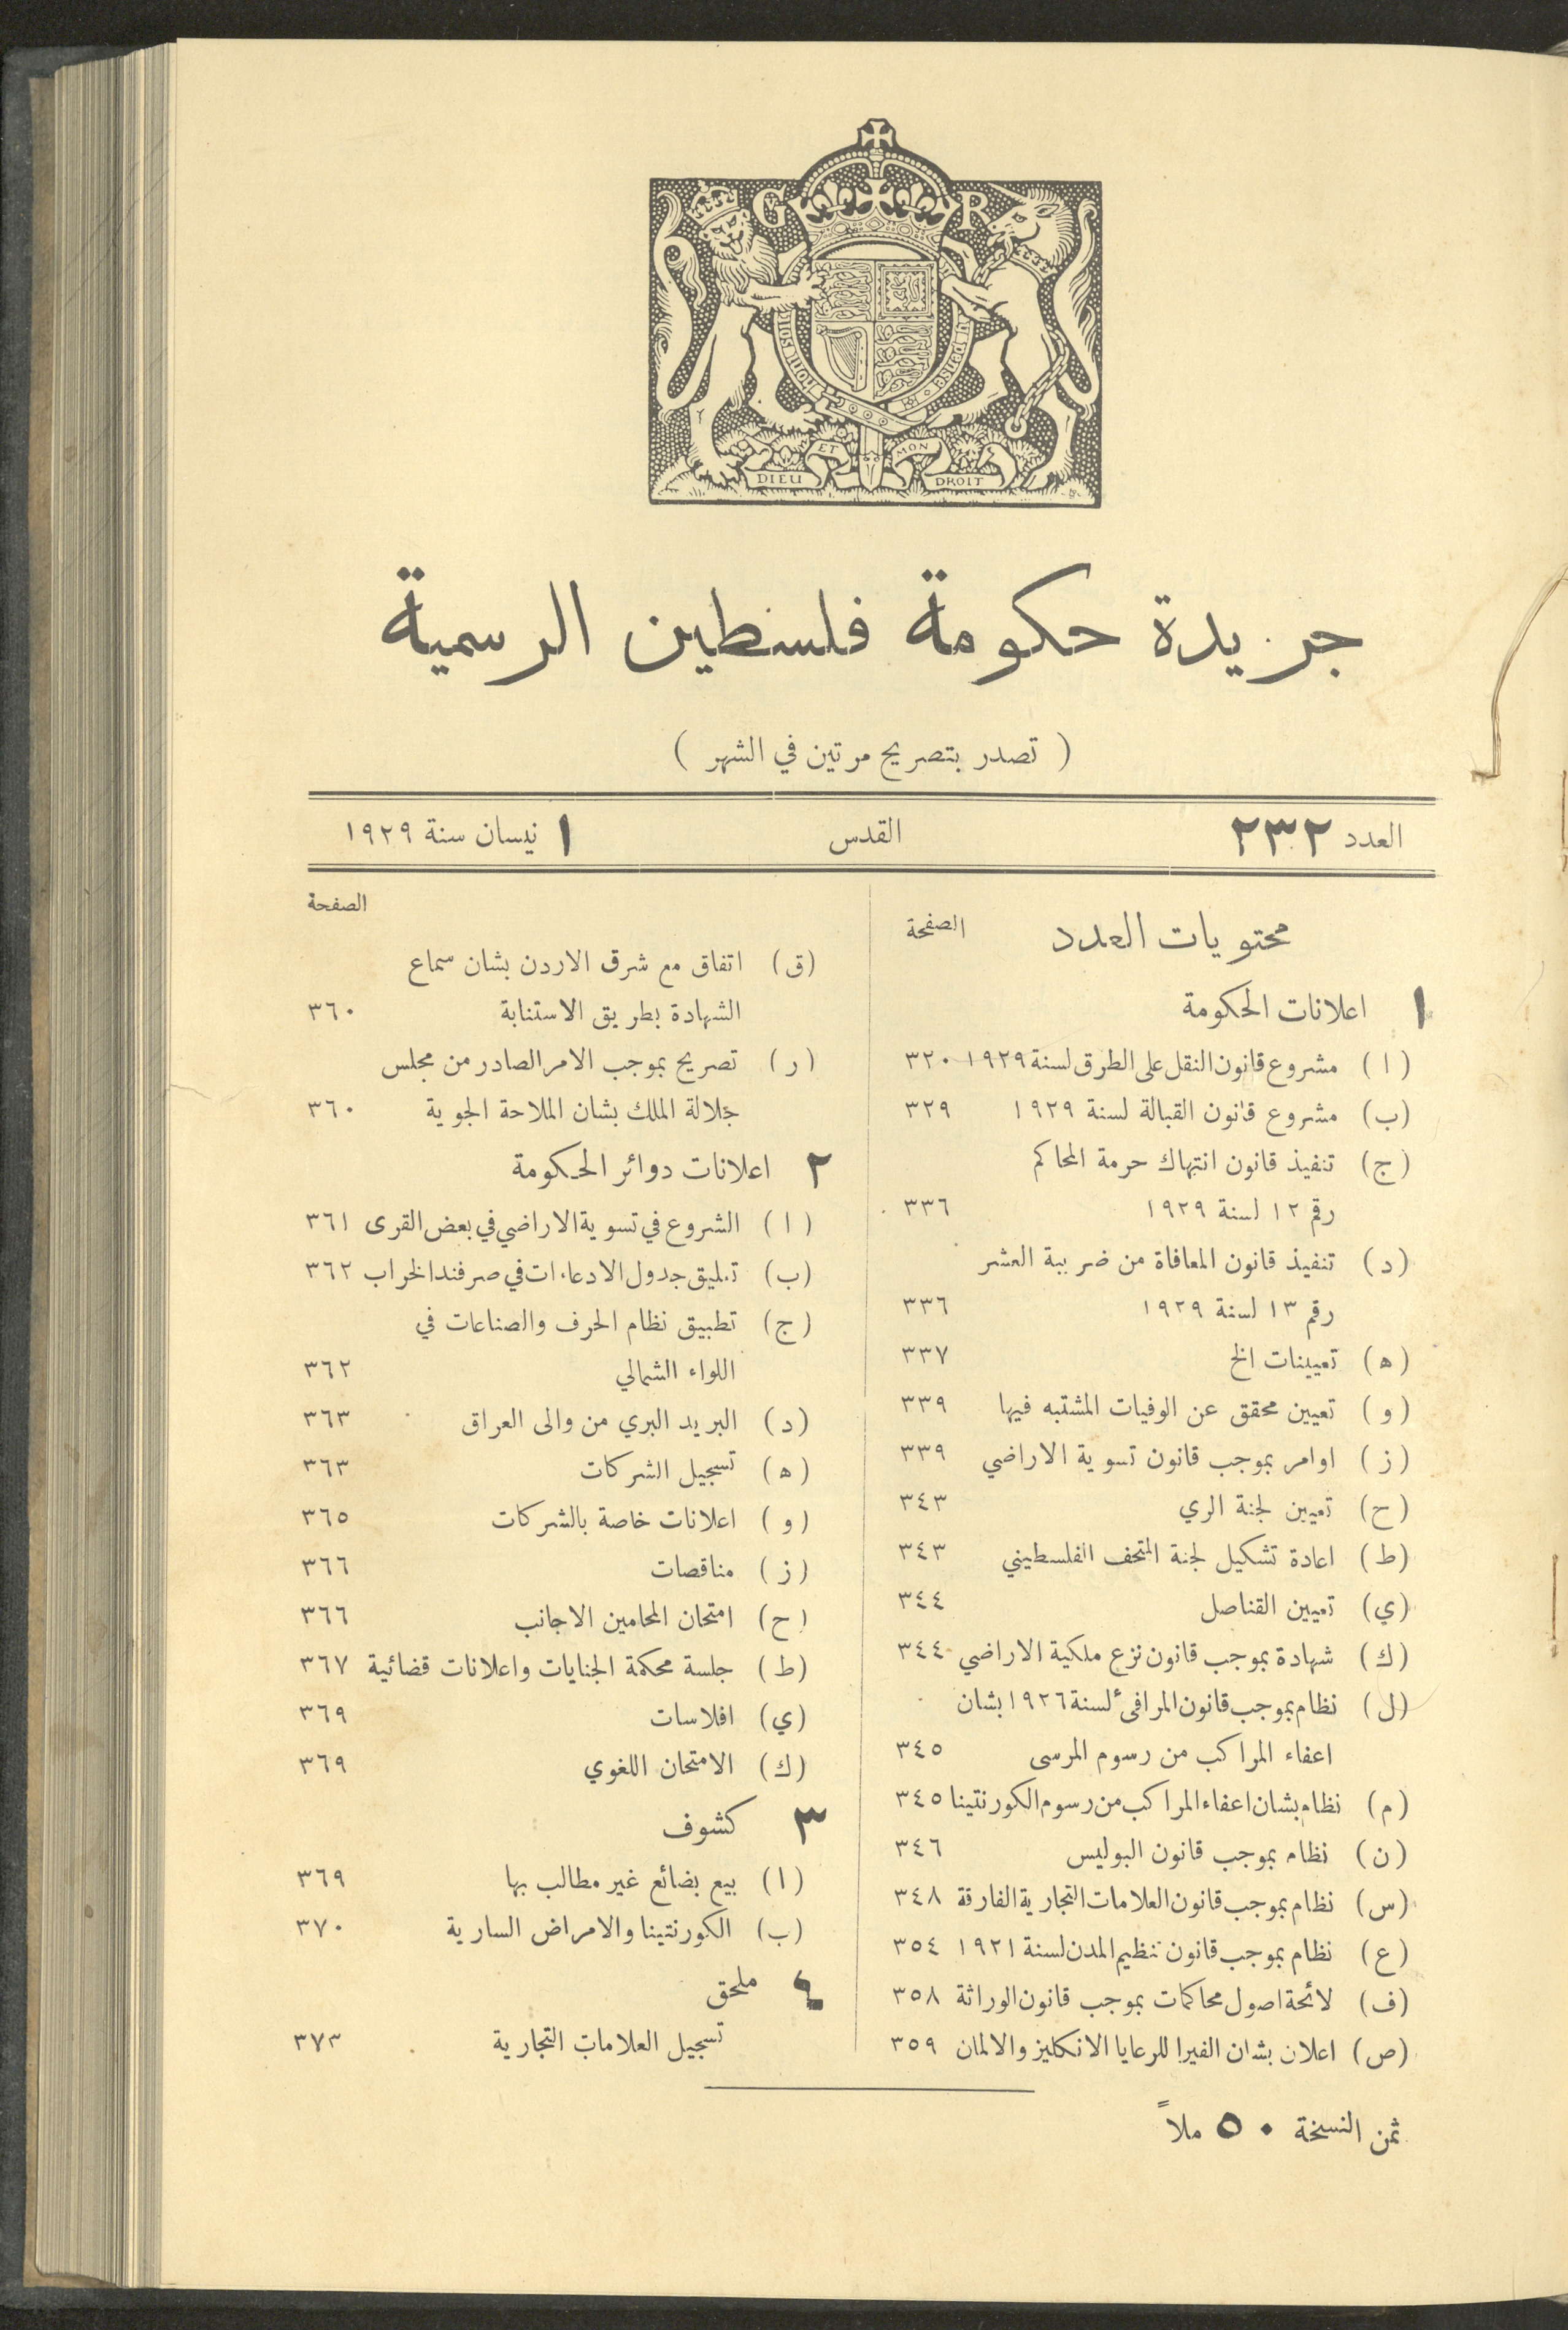 G V R
HONI SOIT
Y PENSE
DIEU ET MON DROIT
جريدة حكومة فلسطين الرسمية
( تصدر بتصريح مرتين في الشهر )
العدد ٢٣٢ القدس ١ نيسان سنة ١٩٢٩
محتويات العدد الصفحة
١ اعلانات الحكومة
(ا) مشروع قانون النقل على الطرق لسنة ١٩٢٩ ٣٢٠
(ب) مشروع قانون القبالة لسنة ١٩٢٩ ٣٢٩
(ج) تنفيذ قانون انتهاك حرمة المحاكم
رقم ١٢ لسنة ١٩٢٩ ٣٣٦
(د) تنفيذ قانون المعافاة من ضريبة العشر
رقم ١٣ لسنة ١٩٢٩ ٣٣٦
(ه) تعيينات الخ ٣٣٧
(و) تعيين محقق عن الوفيات المشتبه فيها ٣٣٩
(ز) اوامر بموجب قانون تسوية الاراضي ٣٣٩
(ح) تعيين لجنة الري ٣٤٣
(ط) اعادة تشكيل لجنة المتحف الفلسطيني ٣٤٣
(ي) تعيين القناصل ٣٤٤
(ك) شهادة بموجب قانون نزع ملكية الاراضي ٣٤٤
(ل) نظام بموجب قانون المرافىء لسنة ١٩٢٦ بشان
اعفاء المراكب من رسوم المرسى ٣٤٥
(م) نظام بشان اعفاء المراكب من رسوم الكورنتينا ٣٤٥
(ن) نظام بموجب قانون البوليس ٣٤٦
(س) نظام بموجب قانون العلامات التجارية الفارقة ٣٤٨
(ع) نظام بموجب قانون تنظيم المدن لسنة ١٩٢١ ٣٥٤
(ف) لائحة اصول محاكمات بموجب قانون الوراثة ٣٥٨
(ص) اعلان بشان الفيزا للرعايا الانكليز والالمان ٣٥٩
الصفحة
(ق) اتفاق مع شرق الاردن بشان سماع
الشهادة بطريق الاستنابة ٣٦٠
(ر) تصريح بموجب الامر الصادر من مجلس
جلالة الملك بشان الملاحة الجوية ٣٦٠
٢ اعلانات دوائر الحكومة
(ا) الشروع في تسوية الاراضي في بعض القرى ٣٦١
(ب) تعليق جدول الادعاءات في صرفند الخراب ٣٦٢
(ج) تطبيق نظام الحرف والصناعات في
اللواء الشمالي ٣٦٢
(د) البريد البري من والى العراق ٣٦٣
(ه) تسجيل الشركات ٣٦٣
(و) اعلانات خاصة بالشركات ٣٦٥
(ز) مناقصات ٣٦٦
(ح) امتحان المحامين الاجانب ٣٦٦
(ط) جلسة محكمة الجنايات واعلانات قضائية ٣٦٧
(ي) افلاسات ٣٦٩
(ك) الامتحان اللغوي ٣٦٩
٣ كشوف
(ا) بيع بضائع غير مطالب بها ٣٦٩
(ب) الكورنتينا والامراض السارية ٣٧٠
٤ ملحق
تسجيل العلامات التجارية ٣٧٣
ثمن النسخة ٥٠ ملاً